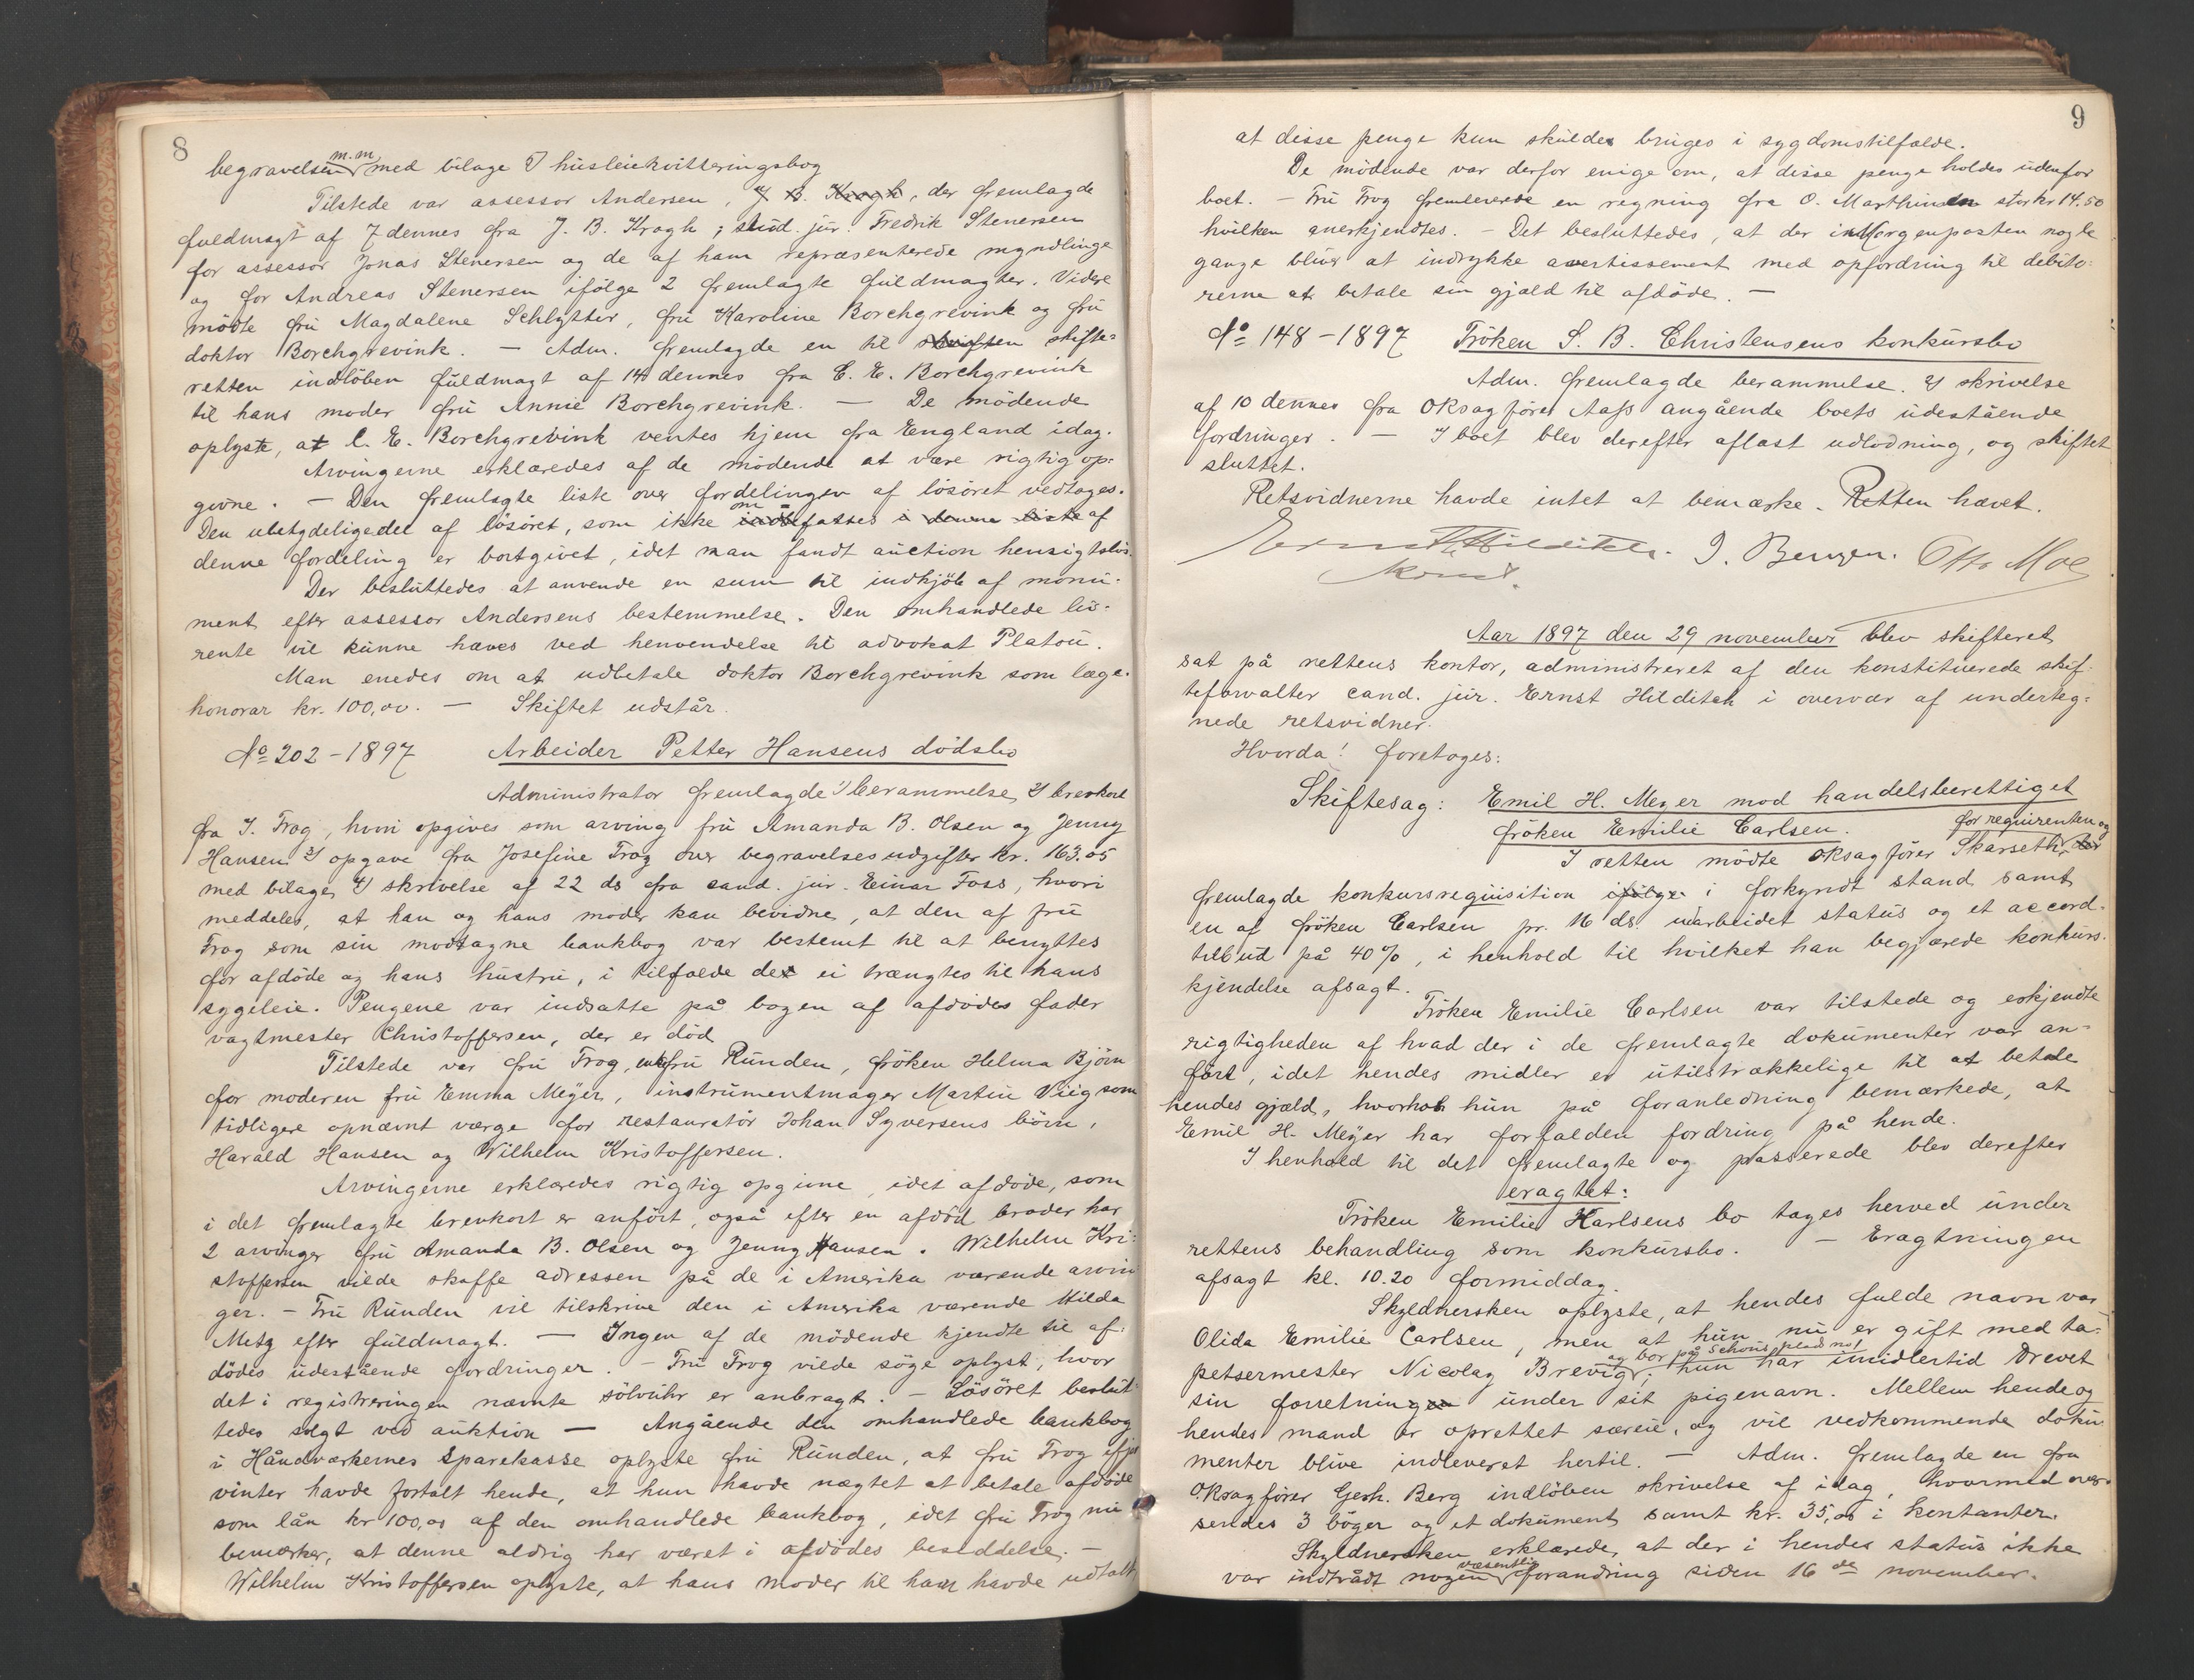 8
begravelsen m.m. med bilage I husleiekvitteringsbog
Tilstede var assessor Andersen, J. B. Kragh, der fremlagde
fuldmagt af 7 dennes fra J. B. Kragh; stud. jur. Fredrik Stenersen
for assessor Jonas Stenersen og de af ham repræsenterede myndlinge
og for Andreas Stenersen ifölge 2 fremlagte fuldmagter. Videre
mödte fru Magdalene Schlytter, fru Karoline Borchgrevink og fru
doktor Borchgrevink. — Adm. fremlagde en til skriften skifte=
retten indlöben fuldmagt af 14 dennes fra C. E. Borchgrevink
til hans moder fru Annie Borchgrevink. — De mödende
oplyste, at C. E. Borchgrevink ventes hjem fra England idag.
Arvingerne erklæredes af de mödende at være rigtig op=
givne. — Den fremlagte liste over fordelingen af lösöret vedtoges.
Den ubetydelige del af lösöret, som ikke omfattes i denne liste af
denne fordeling er bortgivet, idet man fandt auction hensigtslös.
Der besluttedes at anvende en sum til indkjöb af monu-
ment efter assessor Andersens bestemmelse. Den omhandlede liv-
rente vil kunne hæves ved henvendelse til advokat Platou.
Man enedes om at udbetale doktor Borchgrevink som læge-
honorar kr. 100,00. — Skiftet udstår.
No 202-1897 Arbeider Petter Hansens dödsbo
Administrator fremlagde 1) berammelse, 2) brevkort
fra J. Trog, hvori opgives som arving fru Amanda B. Olsen og Jenny
Hansen 3) opgave fra Josefine Trog over begravelsesudgifter kr. 163.05
med bilager 4) skrivelse af 22 ds fra cand. jur. Einar Foss, hvori
meddeles, at han og hans moder kan bevidne, at den af fru
Trog som sin modtagne bankbog var bestemt til at benyttes
for afdöde og hans hustru, i tilfælde det ei trængtes til hans
sygeleie. Pengene var indsatte på bogen af afdödes fader
vagtmester Christoffersen, der er död
Tilstede var fru Trog, fru Runden, fröken Helma Björn
for moderen fru Emma Meyer, instrumentmager Martin Viig som
tidligere opnævnt værge for restauratör Johan Syversens börn,
Harald Hansen og Wilhelm Kristoffersen.
Arvingerne erklæredes rigtig opgivne, idet afdöde, som
i det fremlagte brevkort er anfört, også efter en afdöd broder har
2 arvinger fru Amanda B. Olsen og Jenny Hansen. Wilhelm Kri=
stoffersen vilde skaffe adressen på de i Amerika værende arvin
ger. — Fru Runden vil tilskrive den i Amerika værende Hilda
Metz efter fuldmagt. — Ingen af de mödende kjendte til af-
dödes udestående fordringer. — Fru Trog vilde söge oplyst, hvor
det i registreringen nævnte sölvuhr er anbragt. — Lösöret beslut-
tedes solgt ved auktion — Angående den omhandlede bankbog
i Håndværkernes Sparekasse oplyste fru Runden, at fru Trog ifjor
vinter havde fortalt hende, at hun havde nægtet at betale afdöde
som lån kr 100,00 af den omhandlede bankbog, idet fru Trog nu
bemærker, at denne aldrig har været i afdödes besiddelse. —
Wilhelm Kristoffersen oplyste, at hans moder til ham havde udtalt
9
at disse penge kun skulde bruges i sygdomstilfælde.
De mödende var derfor enige om, at disse penge holdes udenfor
boet. — Fru Trog fremleverede en regning fra O. Marthinsen stor kr 14.50
hvilken anerkjendtes. — Det besluttedes, at der i Morgenposten nogle
gange bliver at indrykke avertissement med opfordring til debito-
rerne at betale sin gjæld til afdöde. —
No 148-1897 Fröken S. B. Christensens konkursbo
Adm. fremlagde berammelse. 2) skrivelse
af 10 dennes fra Oksagförer Aass angående boets udestående
fordringer. — I boet blev derefter aflæst udlodning, og skiftet
sluttet.
Retsvidnerne havde intet at bemærke. Retten hævet.
Ernst Hilditch. J. Berger. Otto Moe
konst.
Aar 1897 den 29 november blev skifteret
sat på rettens kontor, administreret af den konstituerede skif-
teforvalter cand. jur. Ernst Hilditch i overvær af underteg=
nede retsvidner.
Hvorda! foretoges:
Skiftesag: Emil H. Meyer mod handelsberettiget
fröken Emilie Carlsen.
for requirenten og
I retten mödte Oksagförer Skarseth, der
fremlagde konkursrequisition ifölge i forkyndt stand samt
en af fröken Carlsen pr. 16 ds. udarbeidet status og et accord-
tilbud på 40%, i henhold til hvilket han begjærede konkurs-
kjendelse afsagt.
Fröken Emilie Carlsen var tilstede og erkjendte
rigtigheden af hvad der i de fremlagte dokumenter var an=
fört, idet hendes midler er utilstrækkelige til at betale
hendes gjæld, hvorhos hun på foranledning bemærkede, at
Emil H. Meyer har forfalden fordring på hende.
I henhold til det fremlagte og passerede blev derefter
eragtet:
Fröken Emilie Karlsens bo tages herved under
rettens behandling som konkursbo. — Eragtningen
afsagt kl. 10.20 formiddag.
Skyldnersken oplyste, at hendes fulde navn var
Olida Emilie Carlsen, men at hun nu er gift med ta-
petsermester Nicolay Brevig, og bor på Schous plads no 1 hun har imidlertid drevet
sin forretning under sit pigenavn. Mellem hende og
hendes mand er oprettet særeie, og vil vedkommende doku-
menter blive indleveret hertil. — Adm. fremlagde en fra
O.Ksagförer Gerh. Berg indlöben skrivelse af idag, hvormed over-
sendes 3 böger og et dokument samt kr. 35,00 i kontanter.
Skyldnersken erklærede, at der i hendes status ikke
var indtrådt nogen væsentlig forandring siden 16de november.